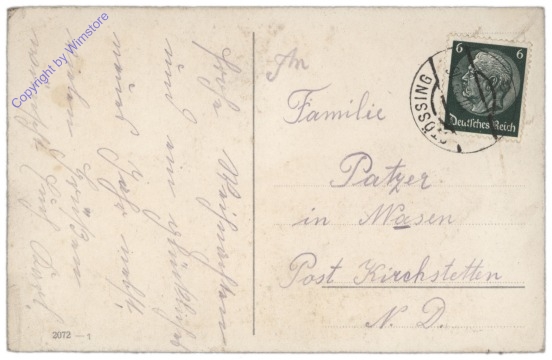 Frohe Weihnachten
und ein glückliches
neues Jahr
An
Familie
Patzer
in Wasen
Post Kirchstetten
N. D.
6 6
Deutsches Reich
STÖSSING
2072 — 1
Copyright by Wimstore